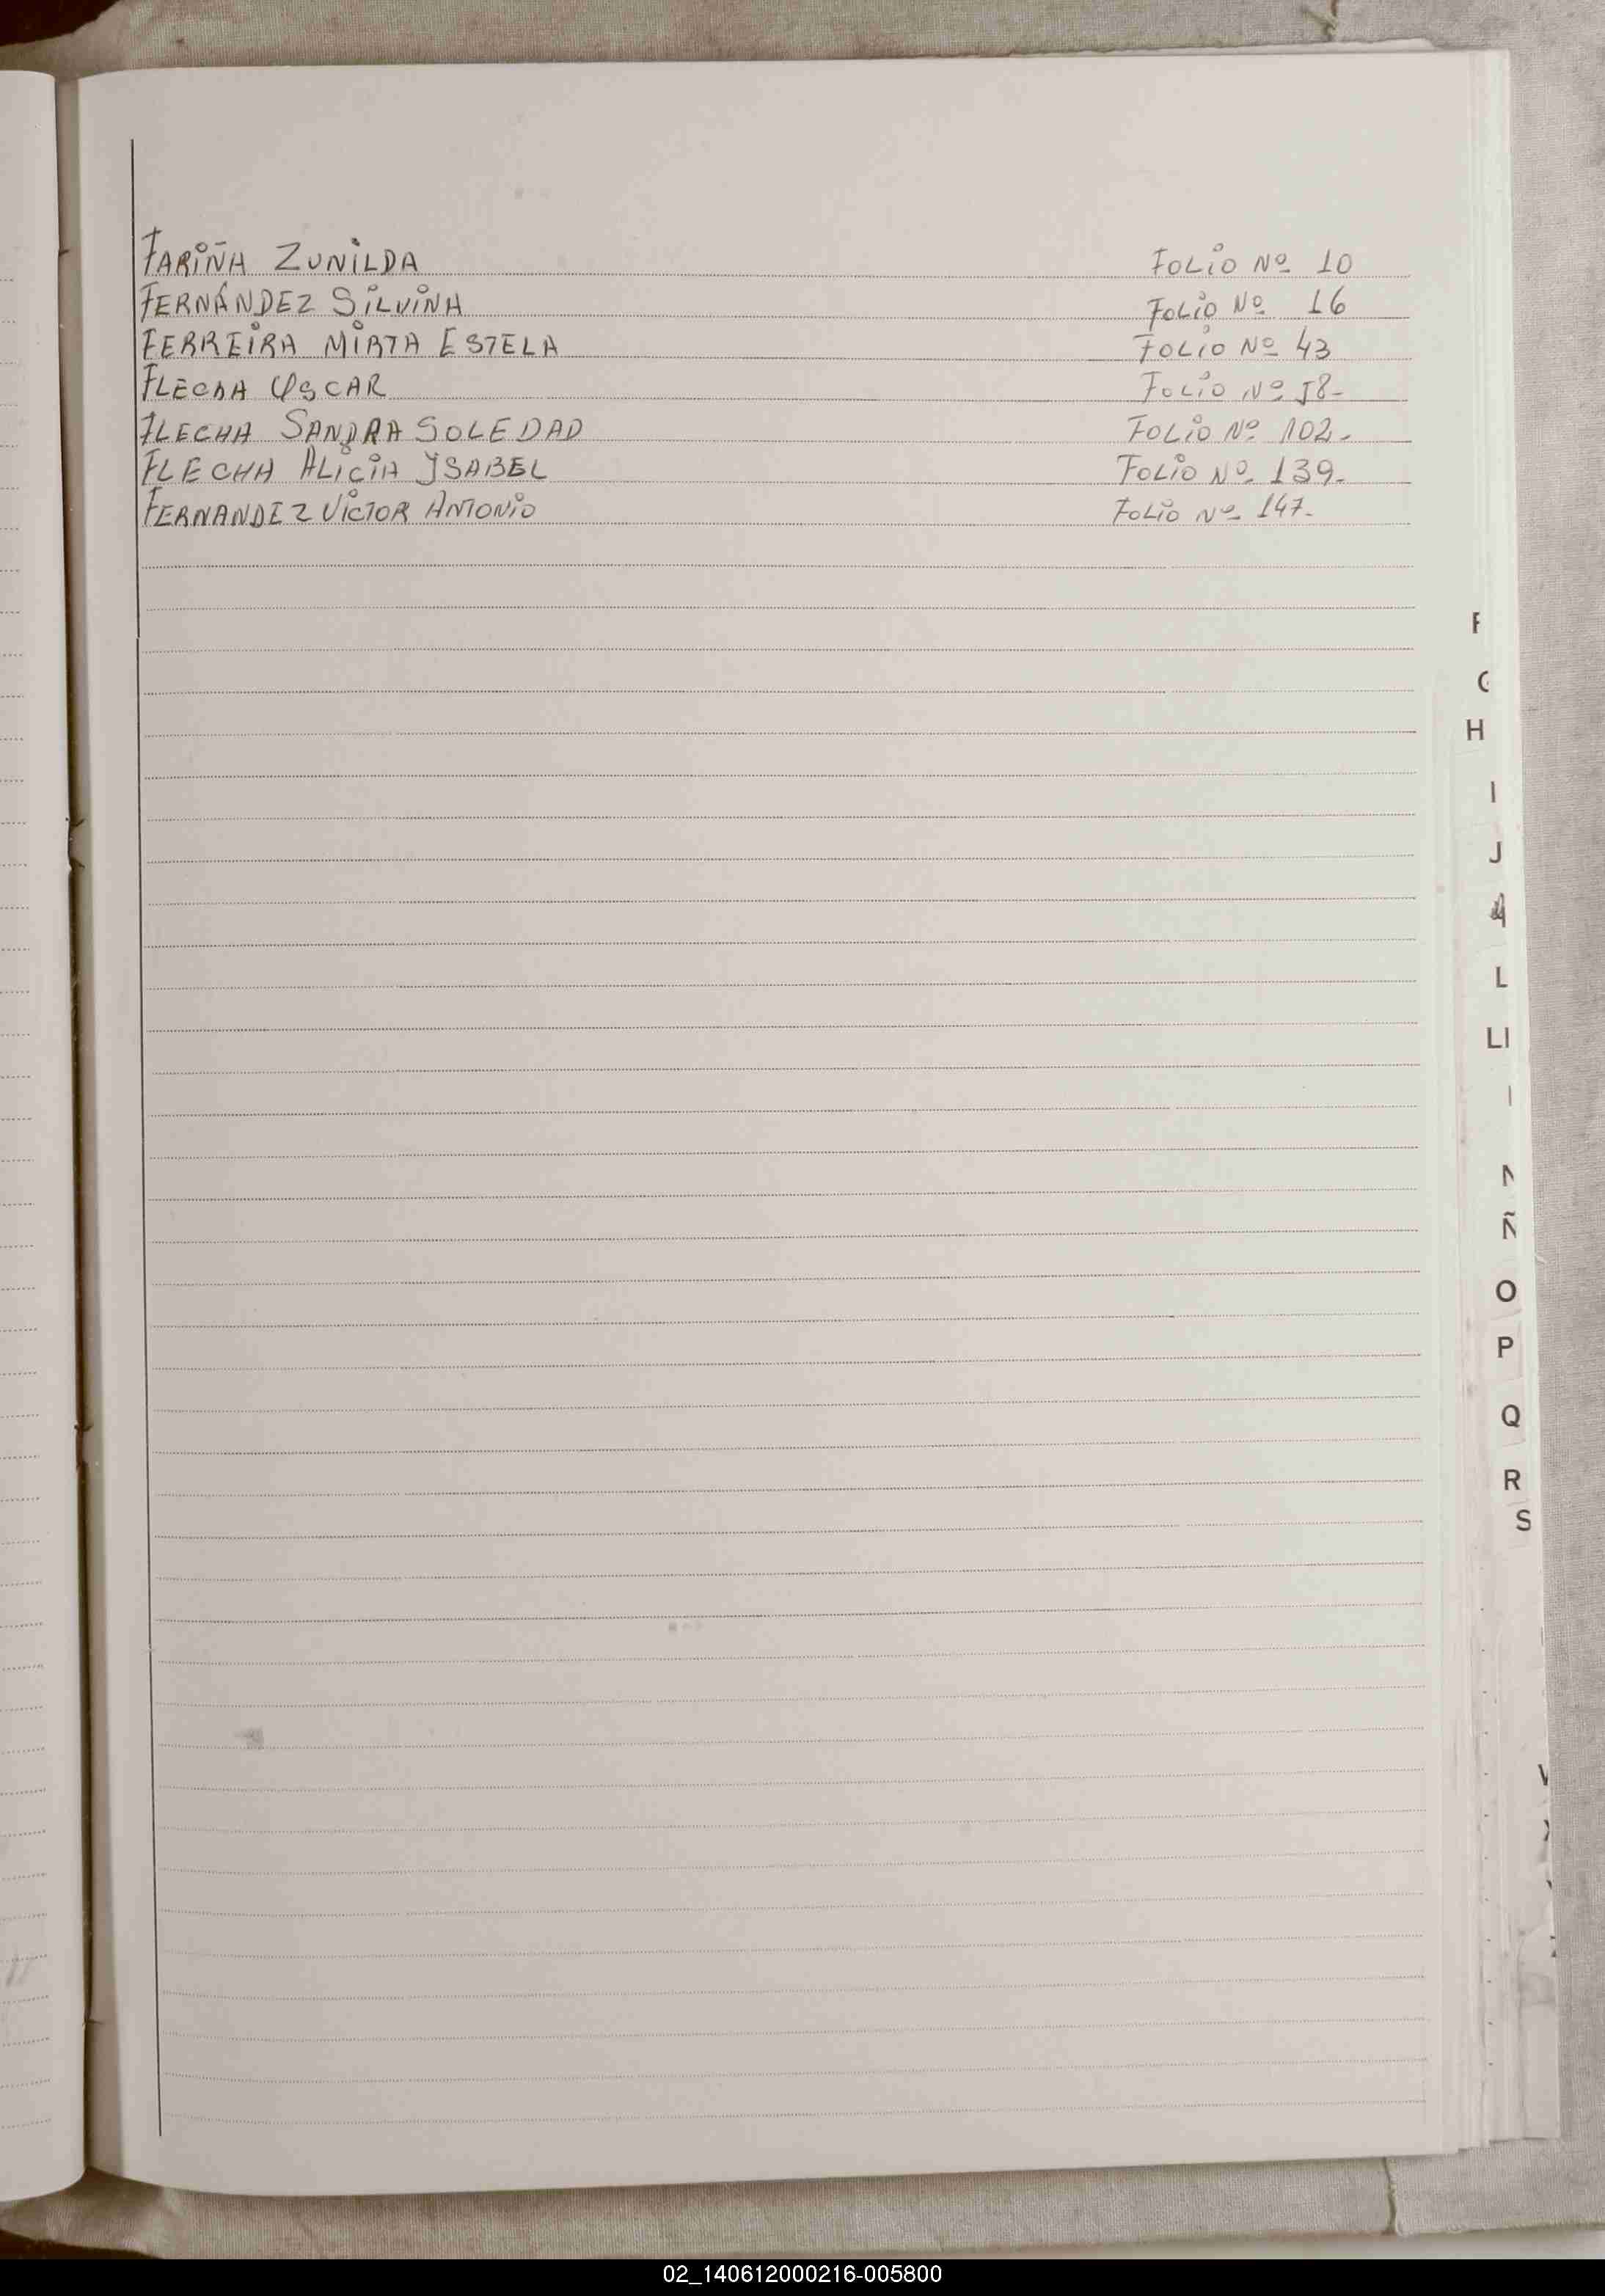 FARIÑA ZUNILDA FOLIO Nº 10
FERNÁNDEZ SILVINA FOLIO Nº 16
FERREIRA MIRTA ESTELA FOLIO Nº 43
FLECHA OSCAR FOLIO Nº 58-
FLECHA SANDRA SOLEDAD FOLIO Nº 102-
FLECHA ALICIA YSABEL FOLIO Nº 139-
FERNANDEZ VICTOR ANTONIO FOLIO Nº 147-
F
G
H
I
J
L
Ll
N
Ñ
O
P
Q
R
S
02_140612000216-005800